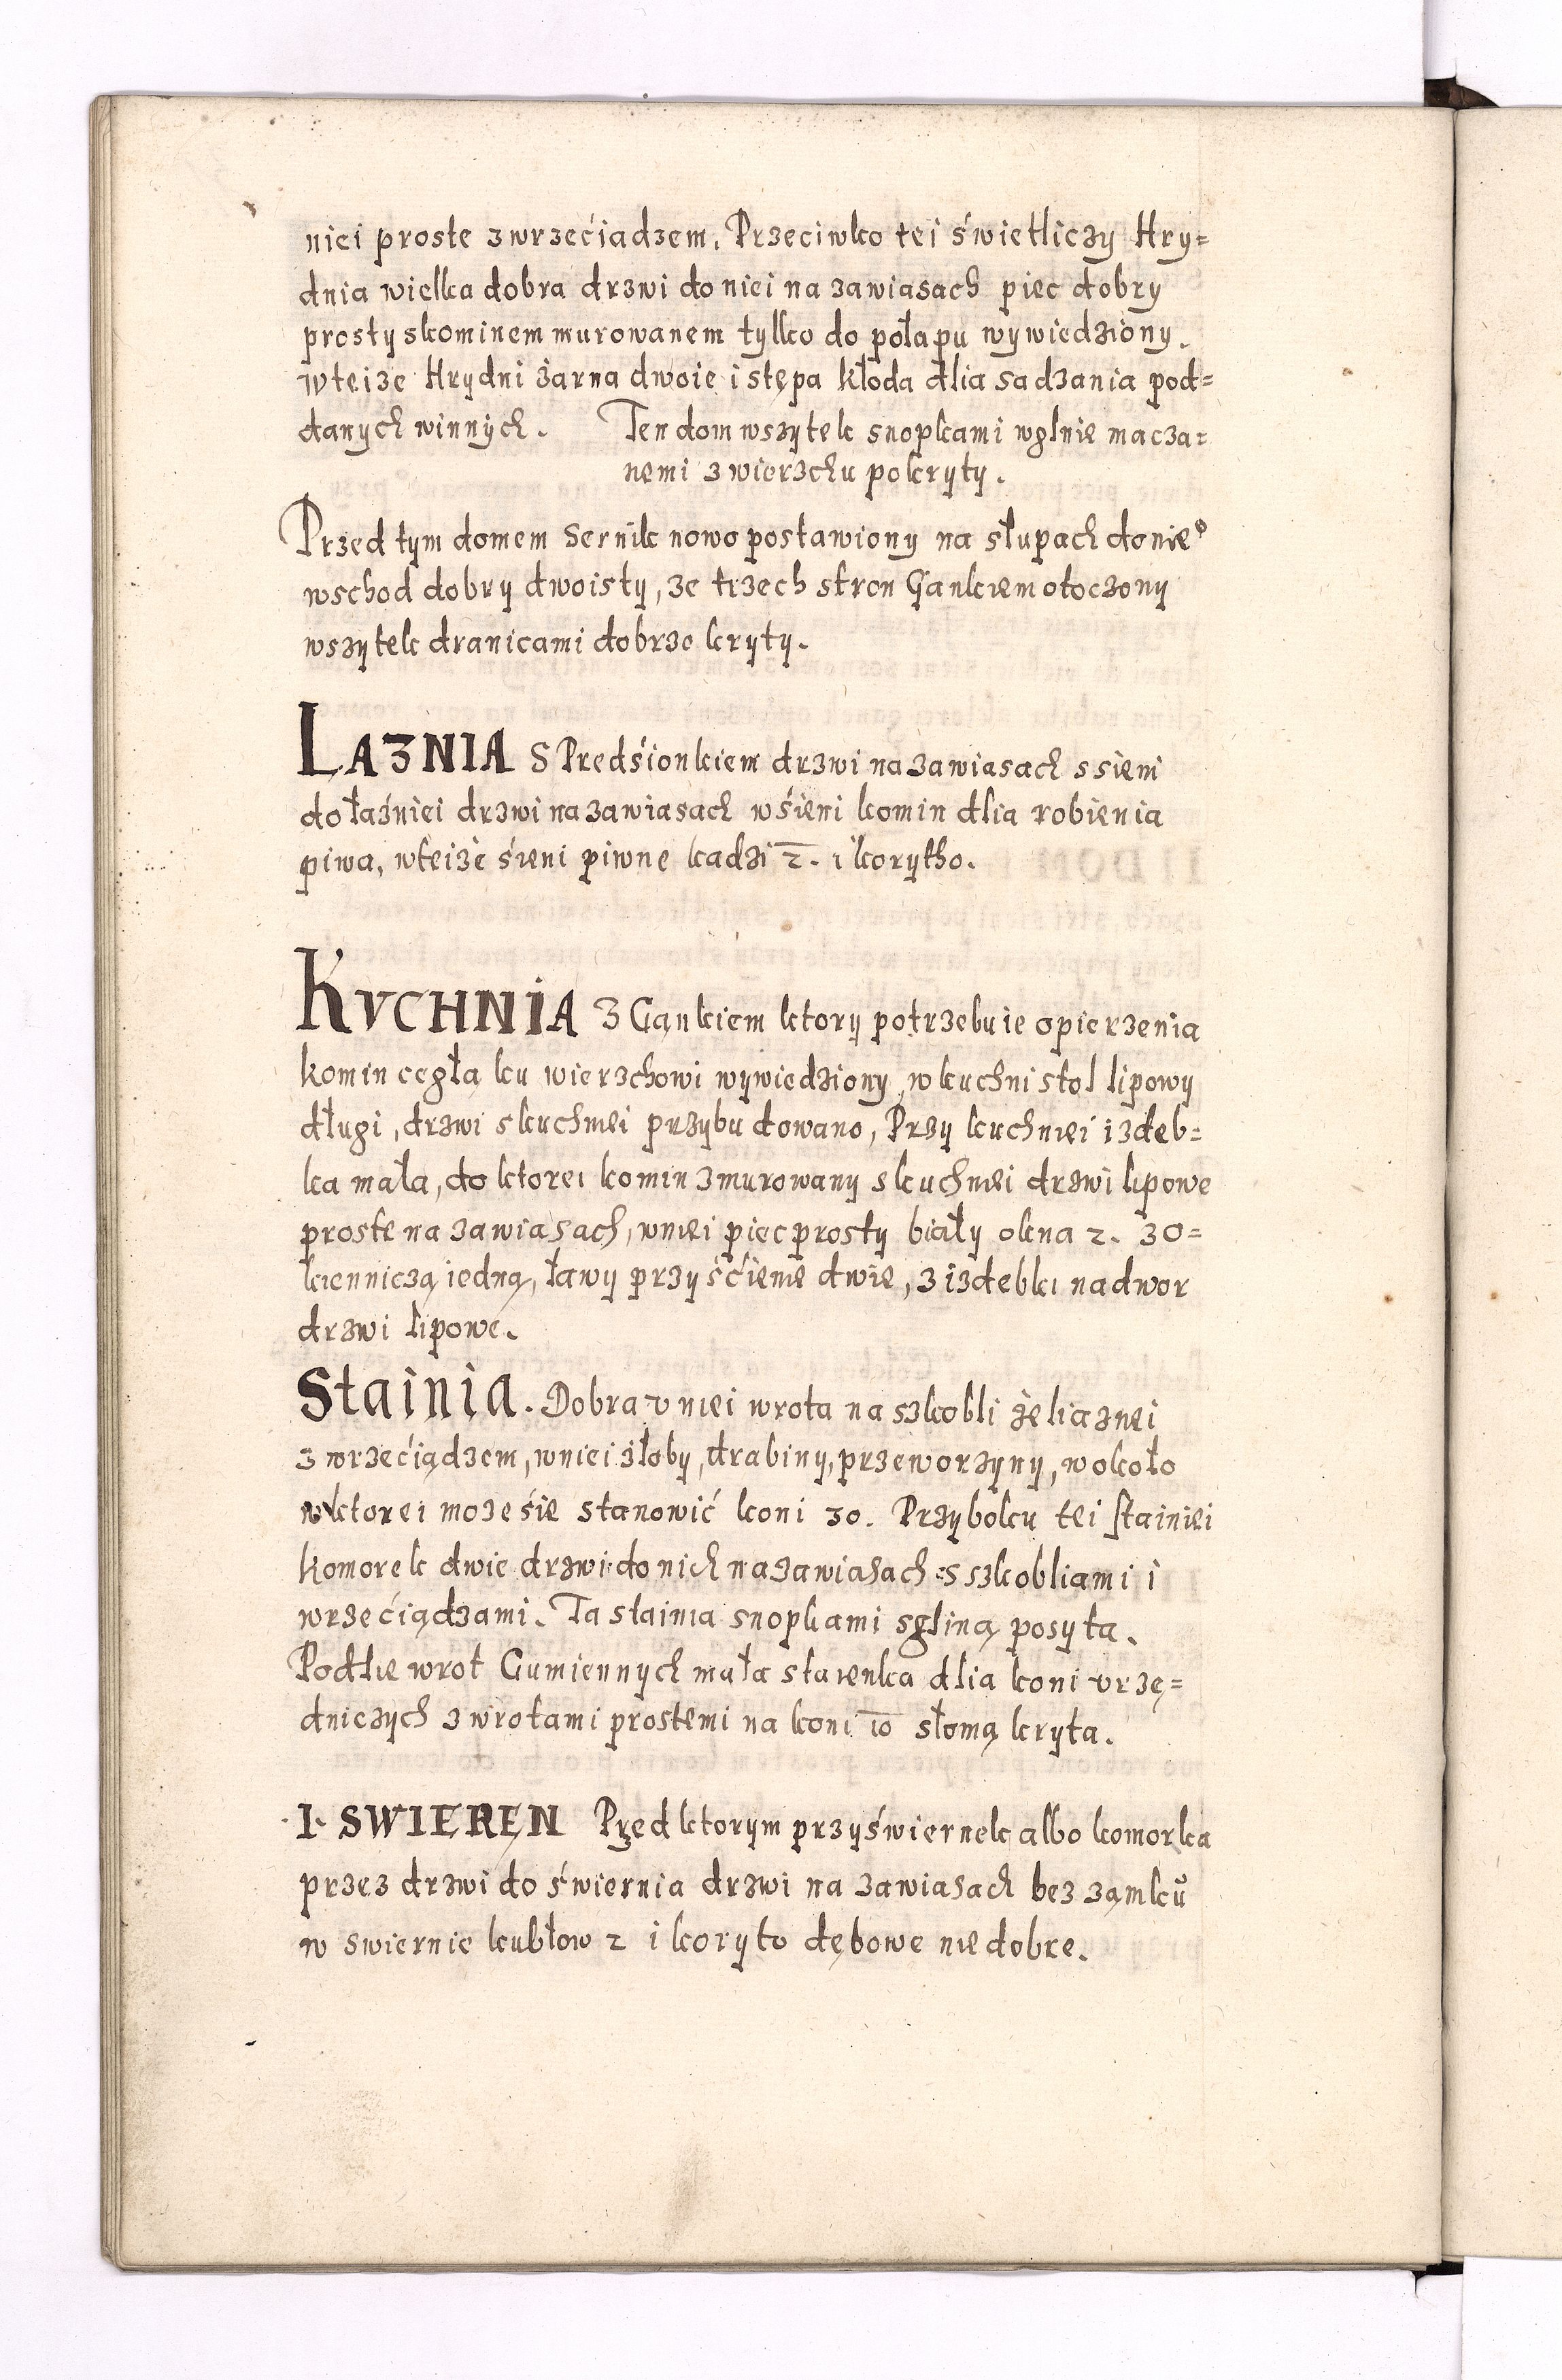 niei proste z wrzećiadzem. Przeciwko tei świetliczy Hry=
dnia wielka dobra drzwi do niei na zawiasach piec dobry
prosty s kominem murowanem tylko do połapu wywiedziony.
w teize Hrydni żarna dwoie i stępa kłoda dlia sadzania pod=
danych winnych. Ten dom wszytek snopkami w glnie macza=
nemi z wierzchu pokryty.
Przed tym domem Sernik nowo postawiony na słupach do nie°
wschod dobry dwoisty, ze trzech stron Gankiem otoczony
wszytek dranicami dobrze kryty.
LAZNIA S Predśionkiem drzwi na zawiasach s sieni
do łaźniei drzwi na zawiasach w śieni komin dlia robienia
piwa, w teize śieni piwne kadzi 2. i korytho.
KVCHNIA Z Gankiem ktory potrzebuie opierzenia
komin cegłą ku wierzchowi wywiedziony, w kuchni stol lipowy
długi, drzwi s kuchniei przybudowano, Przy kuchniei izdeb=
ka mała, do ktorei komin zmurowany s kuchniei drzwi lipowe
proste na zawiasach, w niei piec prosty biały okna 2. z o=
kienniczą iedną, ławy przy śćienie dwie, z izdebki na dwor
drzwi lipowe.
Stainia. Dobra v niei wrota na szkobli żeliaznei
z wrzećiądzem, w niei żłoby, drabiny, przeworzyny, wokoło
w ktorei może śię stanowić koni 30. Przyboku tei stainiei
komorek dwie drzwi do nich na zawiasach s szkobliami i
wrzećiądzami. Ta stainia snopkami s gliną posyta.
Podlie wrot Gumiennych mała staienka dlia koni vrzę=
dniczych z wrotami prostemi na koni 10 słomą kryta.
1. SWIEREN Przed ktorym przyświernek albo komorka
przez drzwi do świernia drzwi na zawiasach bez ząmku
w swiernie kubłow 2 i koryto dębowe nie dobre.